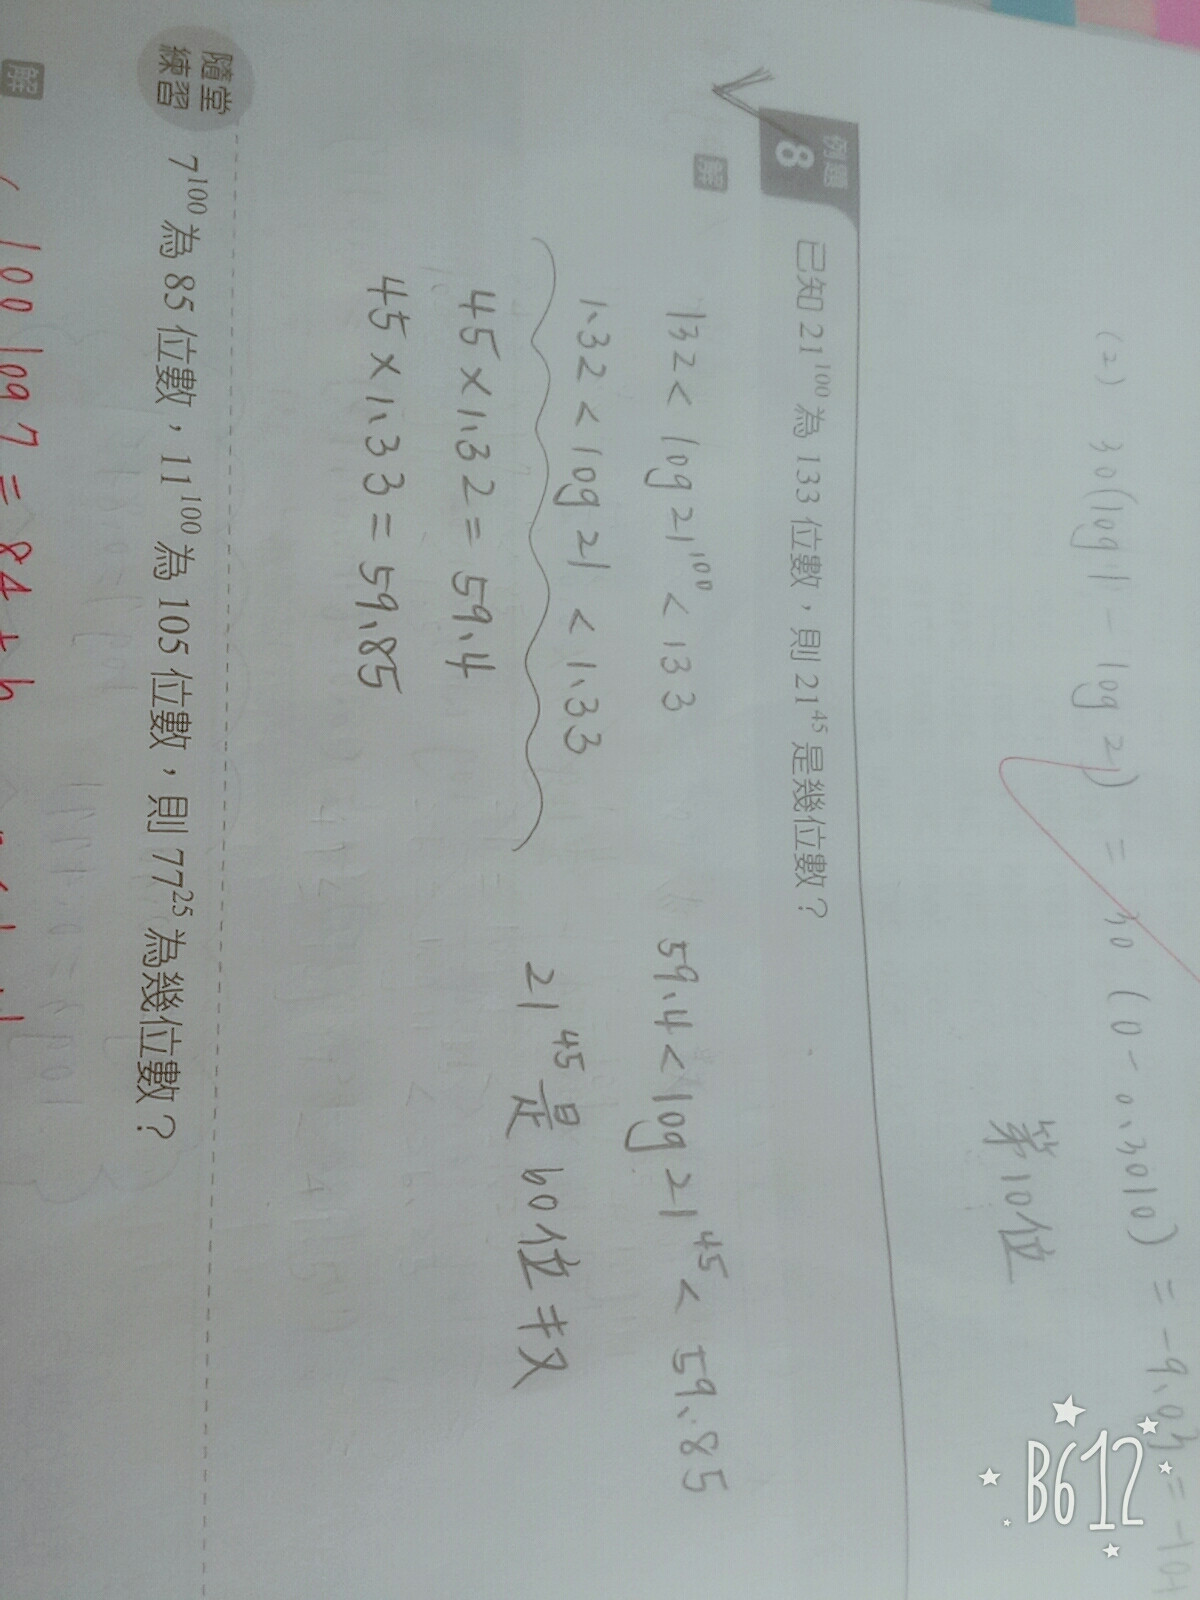 (2) 30(log1 - log2) = 30 (0 - 0.3010) = -9.03 = -10+
第10位
例題
8
已知 21¹⁰⁰ 為 133 位數，則 21⁴⁵ 是幾位數？
解
132 < log 21¹⁰⁰ < 133
1.32 < log 21 < 1.33
45 × 1.32 = 59.4
45 × 1.33 = 59.85
59.4 < log 21⁴⁵ < 59.85
21⁴⁵ 是 60位
隨堂
練習
7¹⁰⁰ 為 85 位數，11¹⁰⁰ 為 105 位數，則 77²⁵ 為幾位數？
解
100 log 7 = 84 +
B612